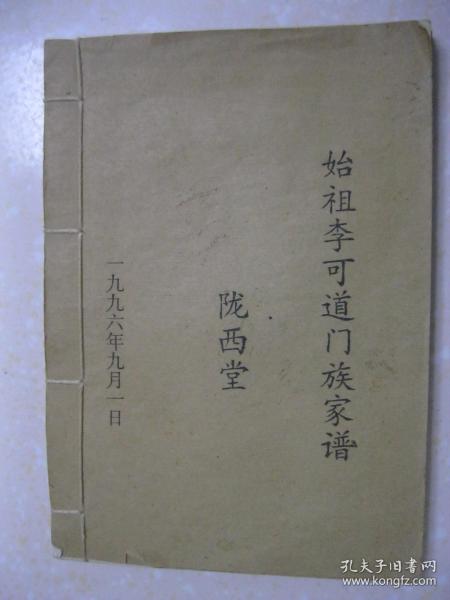 始祖李可道门族家谱
陇西堂
一九九六年九月一日
孔夫子旧书网
www.kongfz.com